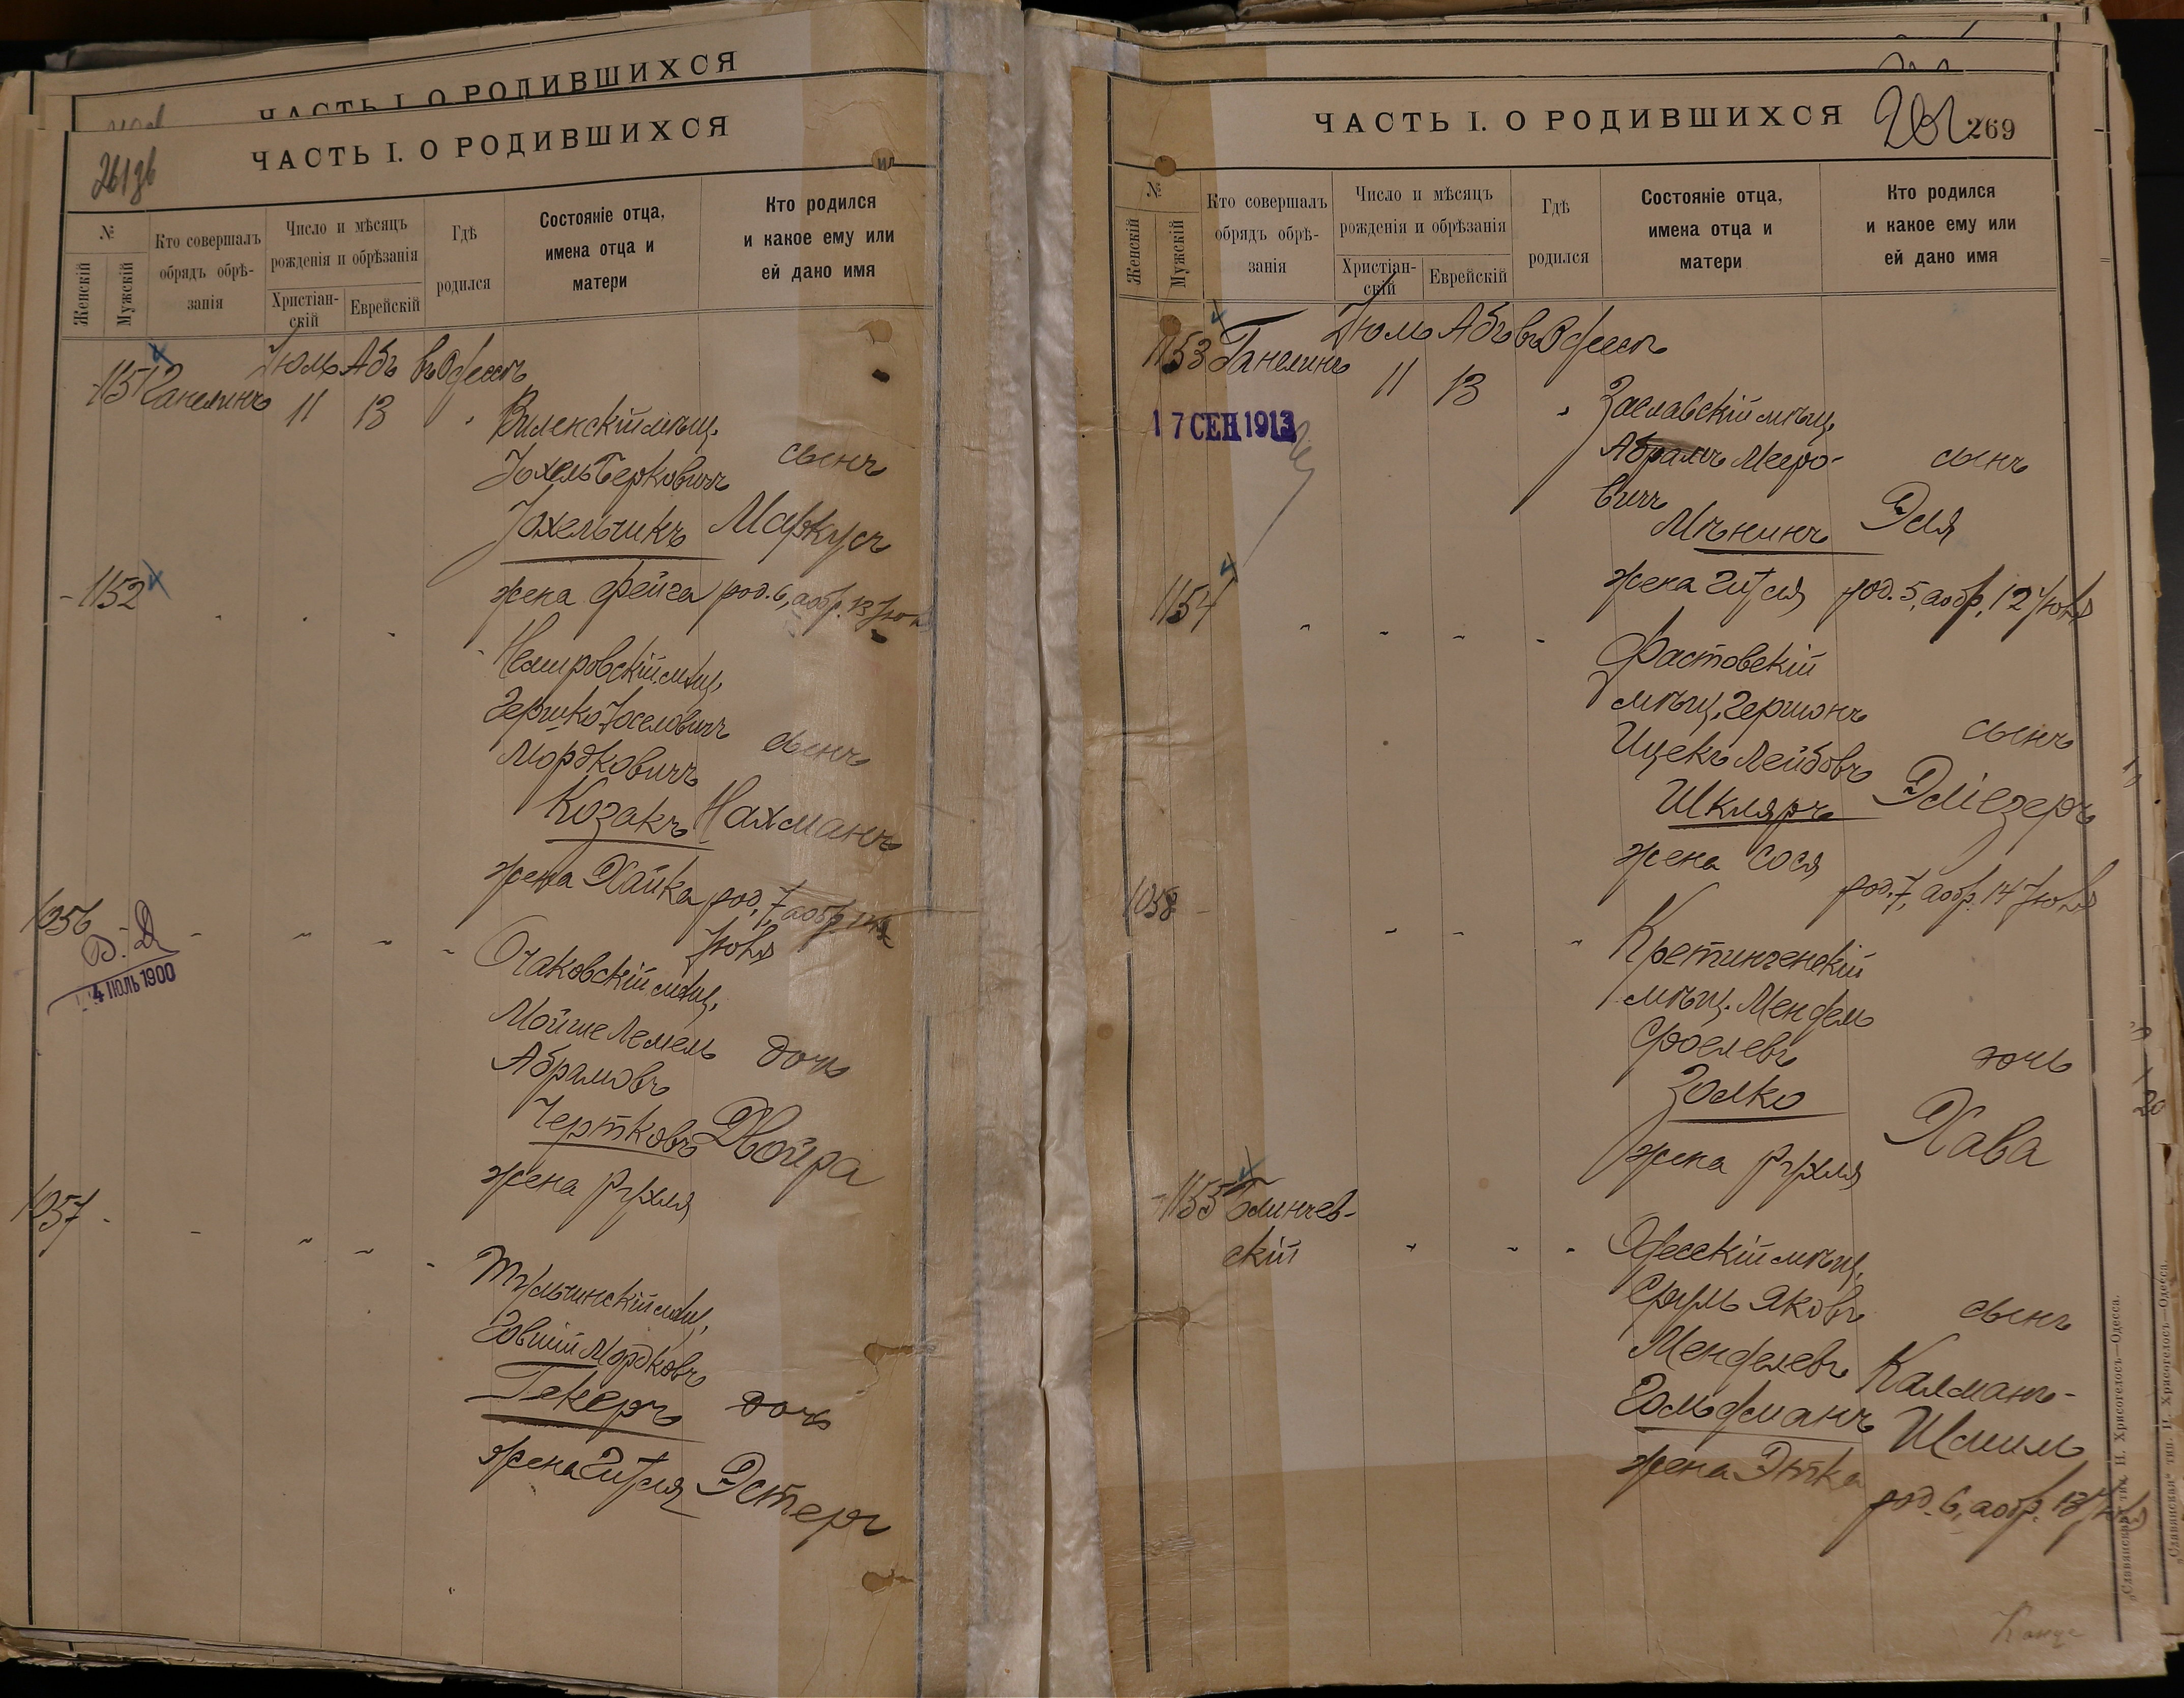 ЧАСТЬ I. О РОДИВШИХСЯ
ЧАСТЬ I. О РОДИВШИХСЯ
№
Женскій
Мужскій
Кто совершалъ
обрядъ обрѣ-
занія
Число и мѣсяцъ
рожденія и обрѣзанія
Христіан-
скій
Еврейскій
Гдѣ
родился
Состояніе отца,
имена отца и
матери
Кто родился
и какое ему или
ей дано имя
1151 Ганелинъ Іюль Абъ въ Одессѣ
11 13
Виленскій мѣщ.
Іохель Берковичъ сынъ
Іохельчикъ Маркусъ
жена Фейга род. 6, а обр. 13 Іюля
1152
Немировскій мѣщ.
Гершко Іоселовичъ сынъ
Мордковичъ
Козакъ Нахманъ
жена Хайка род. 7, а обр. 14
Іюля
1056
4 ІЮЛЬ 1900
Очаковскій мѣщ.
Мойше Лемель дочь
Абрамовъ
Чертковъ Двойра
жена Рухля
1057
Тульчинскій мѣщ.
Говшій Мордковъ
Гекеръ дочь
жена Гитля Эстеръ
ЧАСТЬ I. О РОДИВШИХСЯ
269
№
Женскій
Мужскій
Кто совершалъ
обрядъ обрѣ-
занія
Число и мѣсяцъ
рожденія и обрѣзанія
Христіан-
скій
Еврейскій
Гдѣ
родился
Состояніе отца,
имена отца и
матери
Кто родился
и какое ему или
ей дано имя
1153 Ганелинъ Іюль Абъ въ Одессѣ
11 13
17 СЕН 1913
Заславскій мѣщ.
Абрамъ Мееро- сынъ
вичъ
Мѣнинъ Эля
жена Гитля род. 5, а обр. 12 Іюля
1154
Фастовскій
мѣщ. Гершонъ
Ицекъ Лейбовъ сынъ
Шкляръ Эліезеръ
жена Сося
род. 7, а обр. 14 Іюля
1058
Кретингенскій
мѣщ. Мендель
Сроелевъ дочь
Золко
Хава
жена Рухля
1155 Блинчев-
скій
Одесскій мѣщ.
Сруль Яковъ сынъ
Менделевъ Калманъ-
Гольдманъ Шмиль
жена Этка
род. 6, а обр. 13 Іюля
„Славянская“ тип. Н. Хрисогелосъ—Одесса.